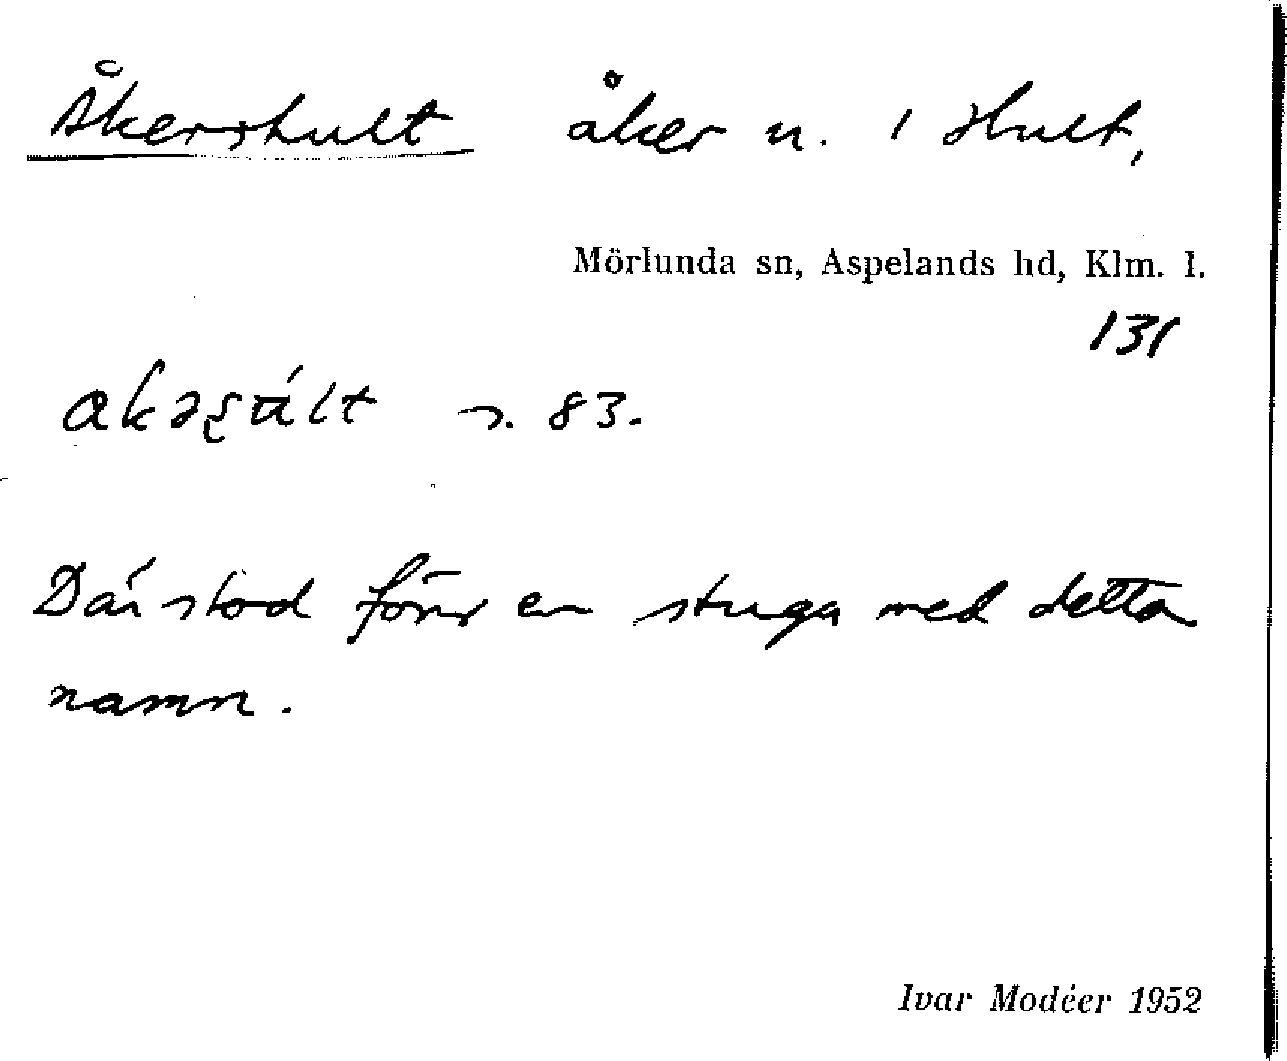 Åkershult åker u. 1 Hult,
Mörlunda sn, Aspelands hd, Klm. l.
131
s. 83.
Där stod förr en stuga med detta
namn.
Ivar Modéer 1952